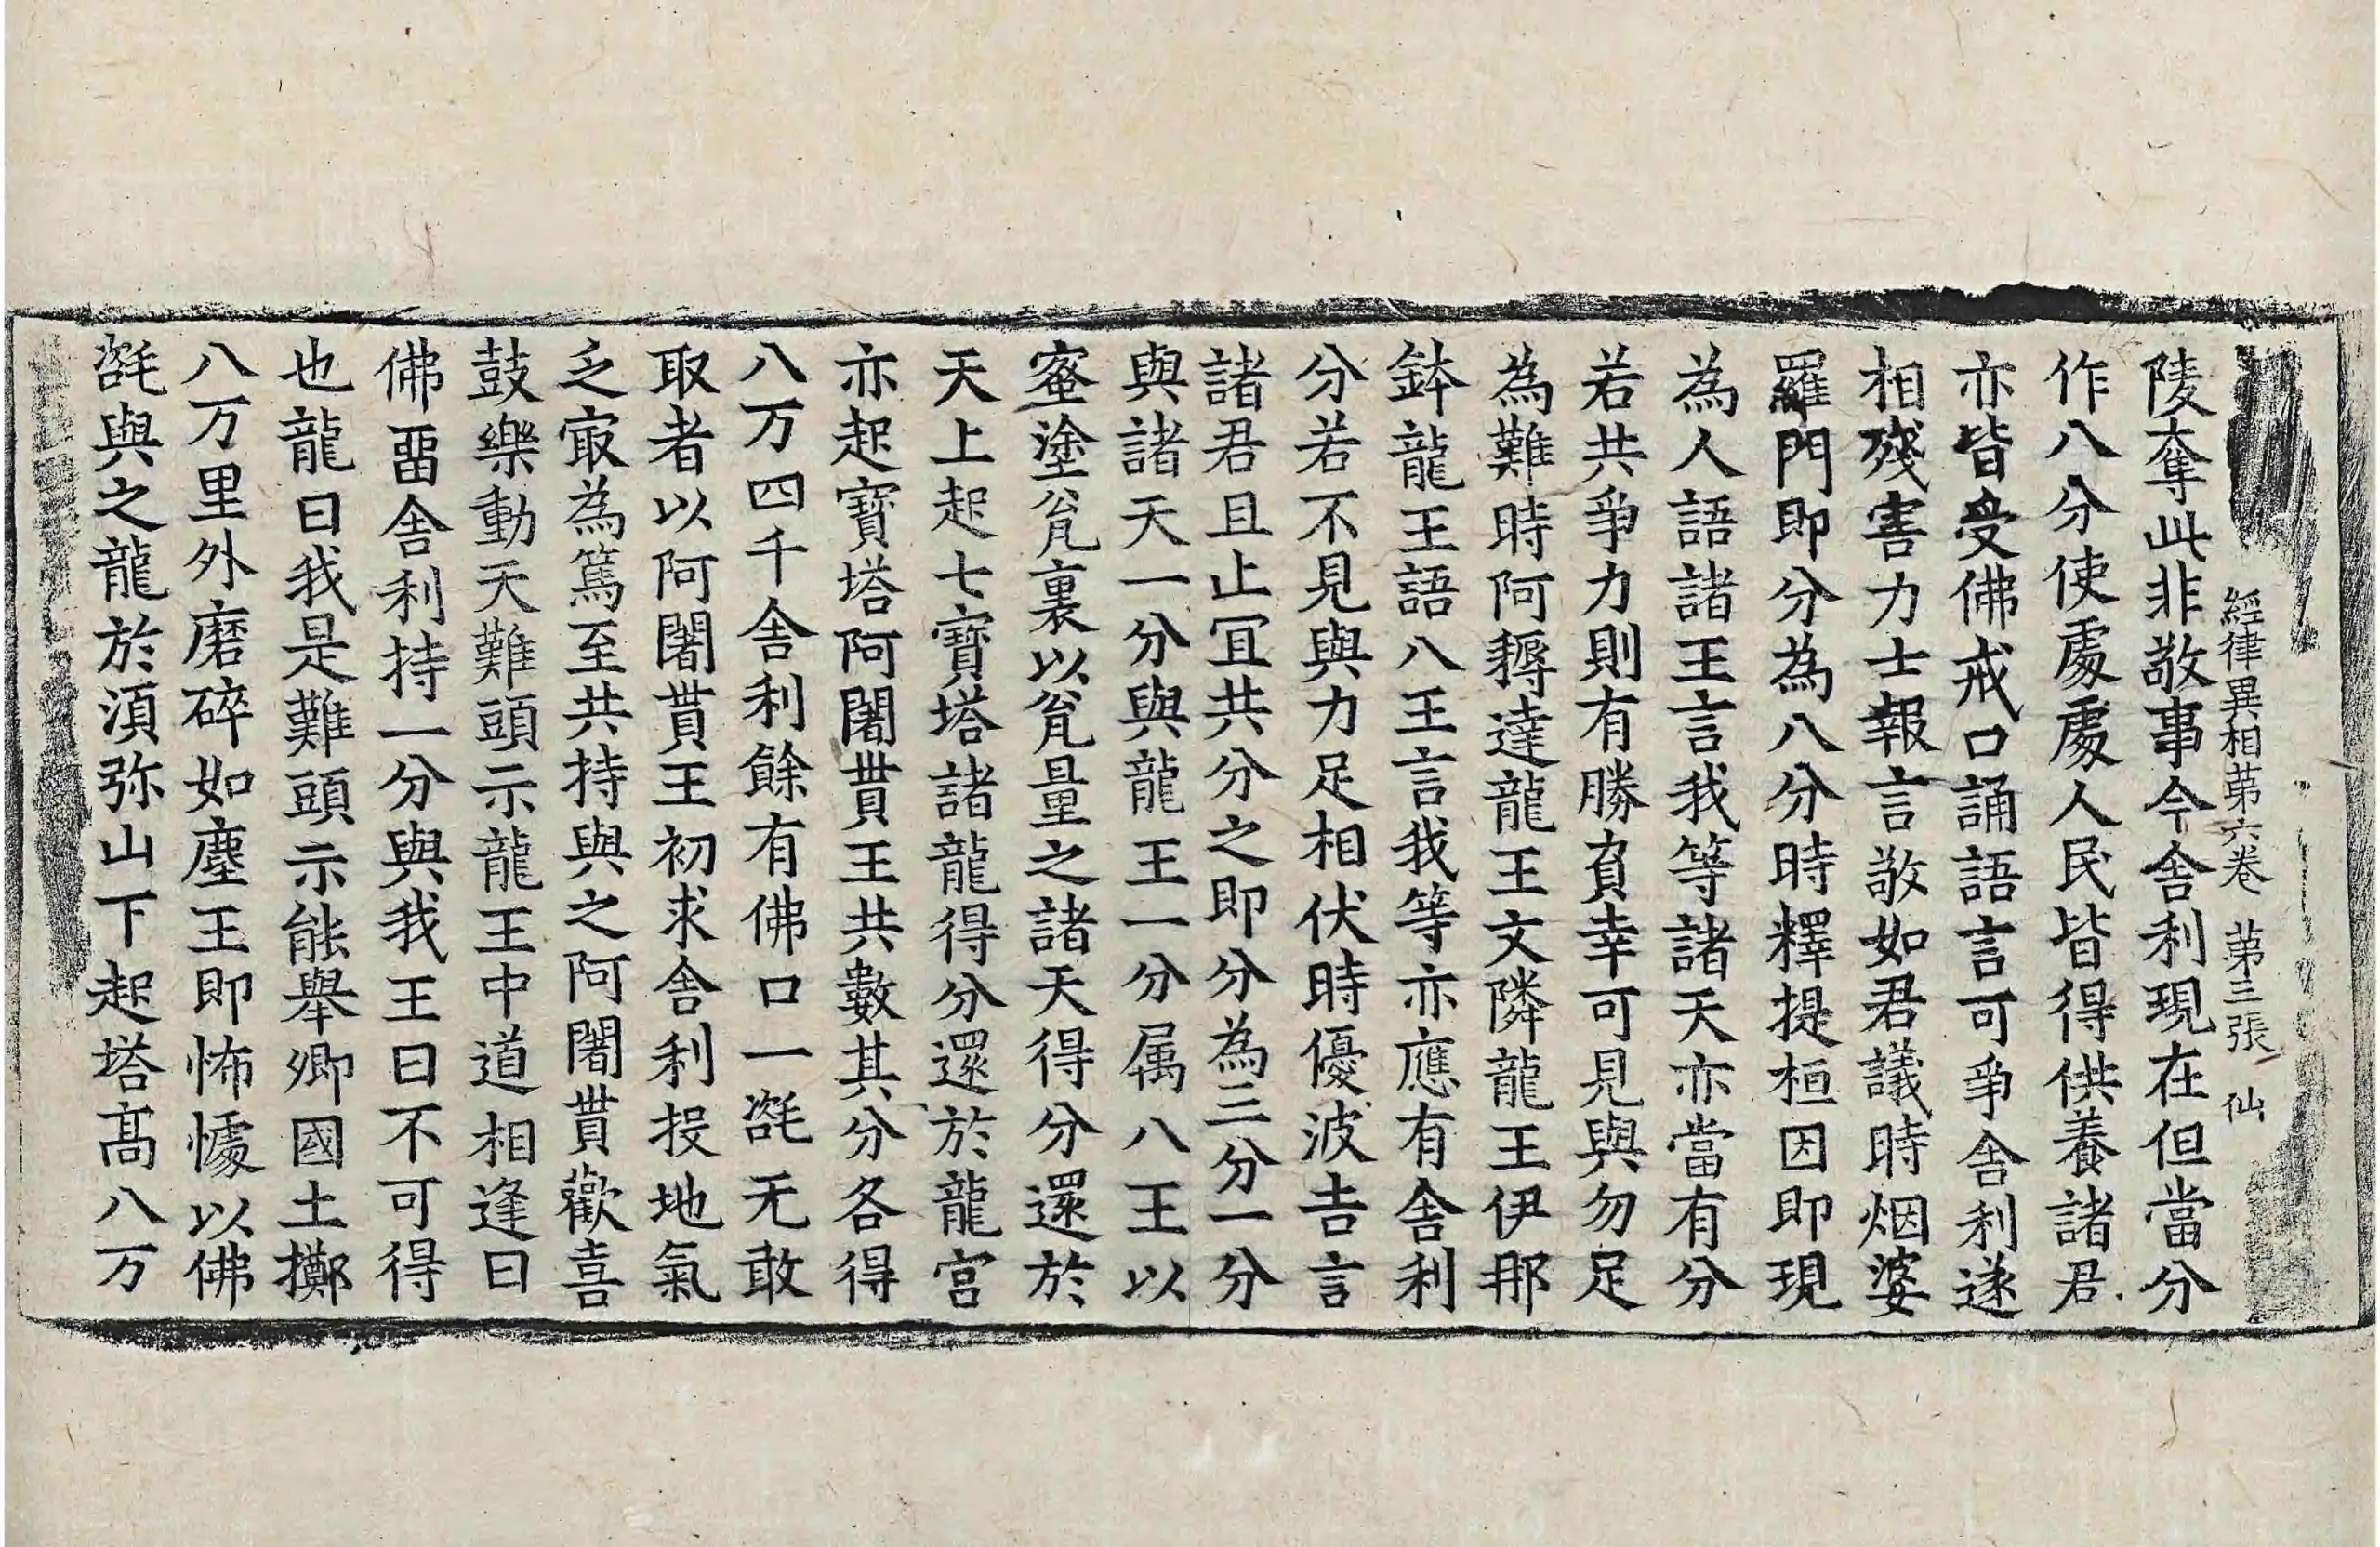 經律異相苐六卷 苐三張 仙
陵奪此非敬事今舍利現在但當分
作八分使處處人民皆得供養諸君
亦皆受佛戒口誦語言可爭舍利遂
相殘害力士報言敬如君議時烟婆
羅門即分為八分時釋提桓因即現
為人語諸王言我等諸天亦當有分
若共爭力則有勝負幸可見與勿足
為難時阿耨達龍王文隣龍王伊那
鉢龍王語八王言我等亦應有舍利
分若不見與力足相伏時優波吉言
諸君且止冝共分之即分為三分一分
與諸天一分與龍王一分属八王以
蜜塗瓮裏以瓮量之諸天得分還於
天上起七寶塔諸龍得分還於龍宮
亦起寶塔阿闍貰王共數其分各得
八万四千舍利餘有佛口一髭无敢
取者以阿闍貰王初求舍利投地氣
乏㝡為篤至共持與之阿闍貰歡喜
鼓樂動天難頭示龍王中道相逢曰
佛畱舍利持一分與我王曰不可得
也龍曰我是難頭示能舉卿國土擲
八万里外磨碎如塵王即怖懅以佛
髭與之龍於湏弥山下起塔髙八万